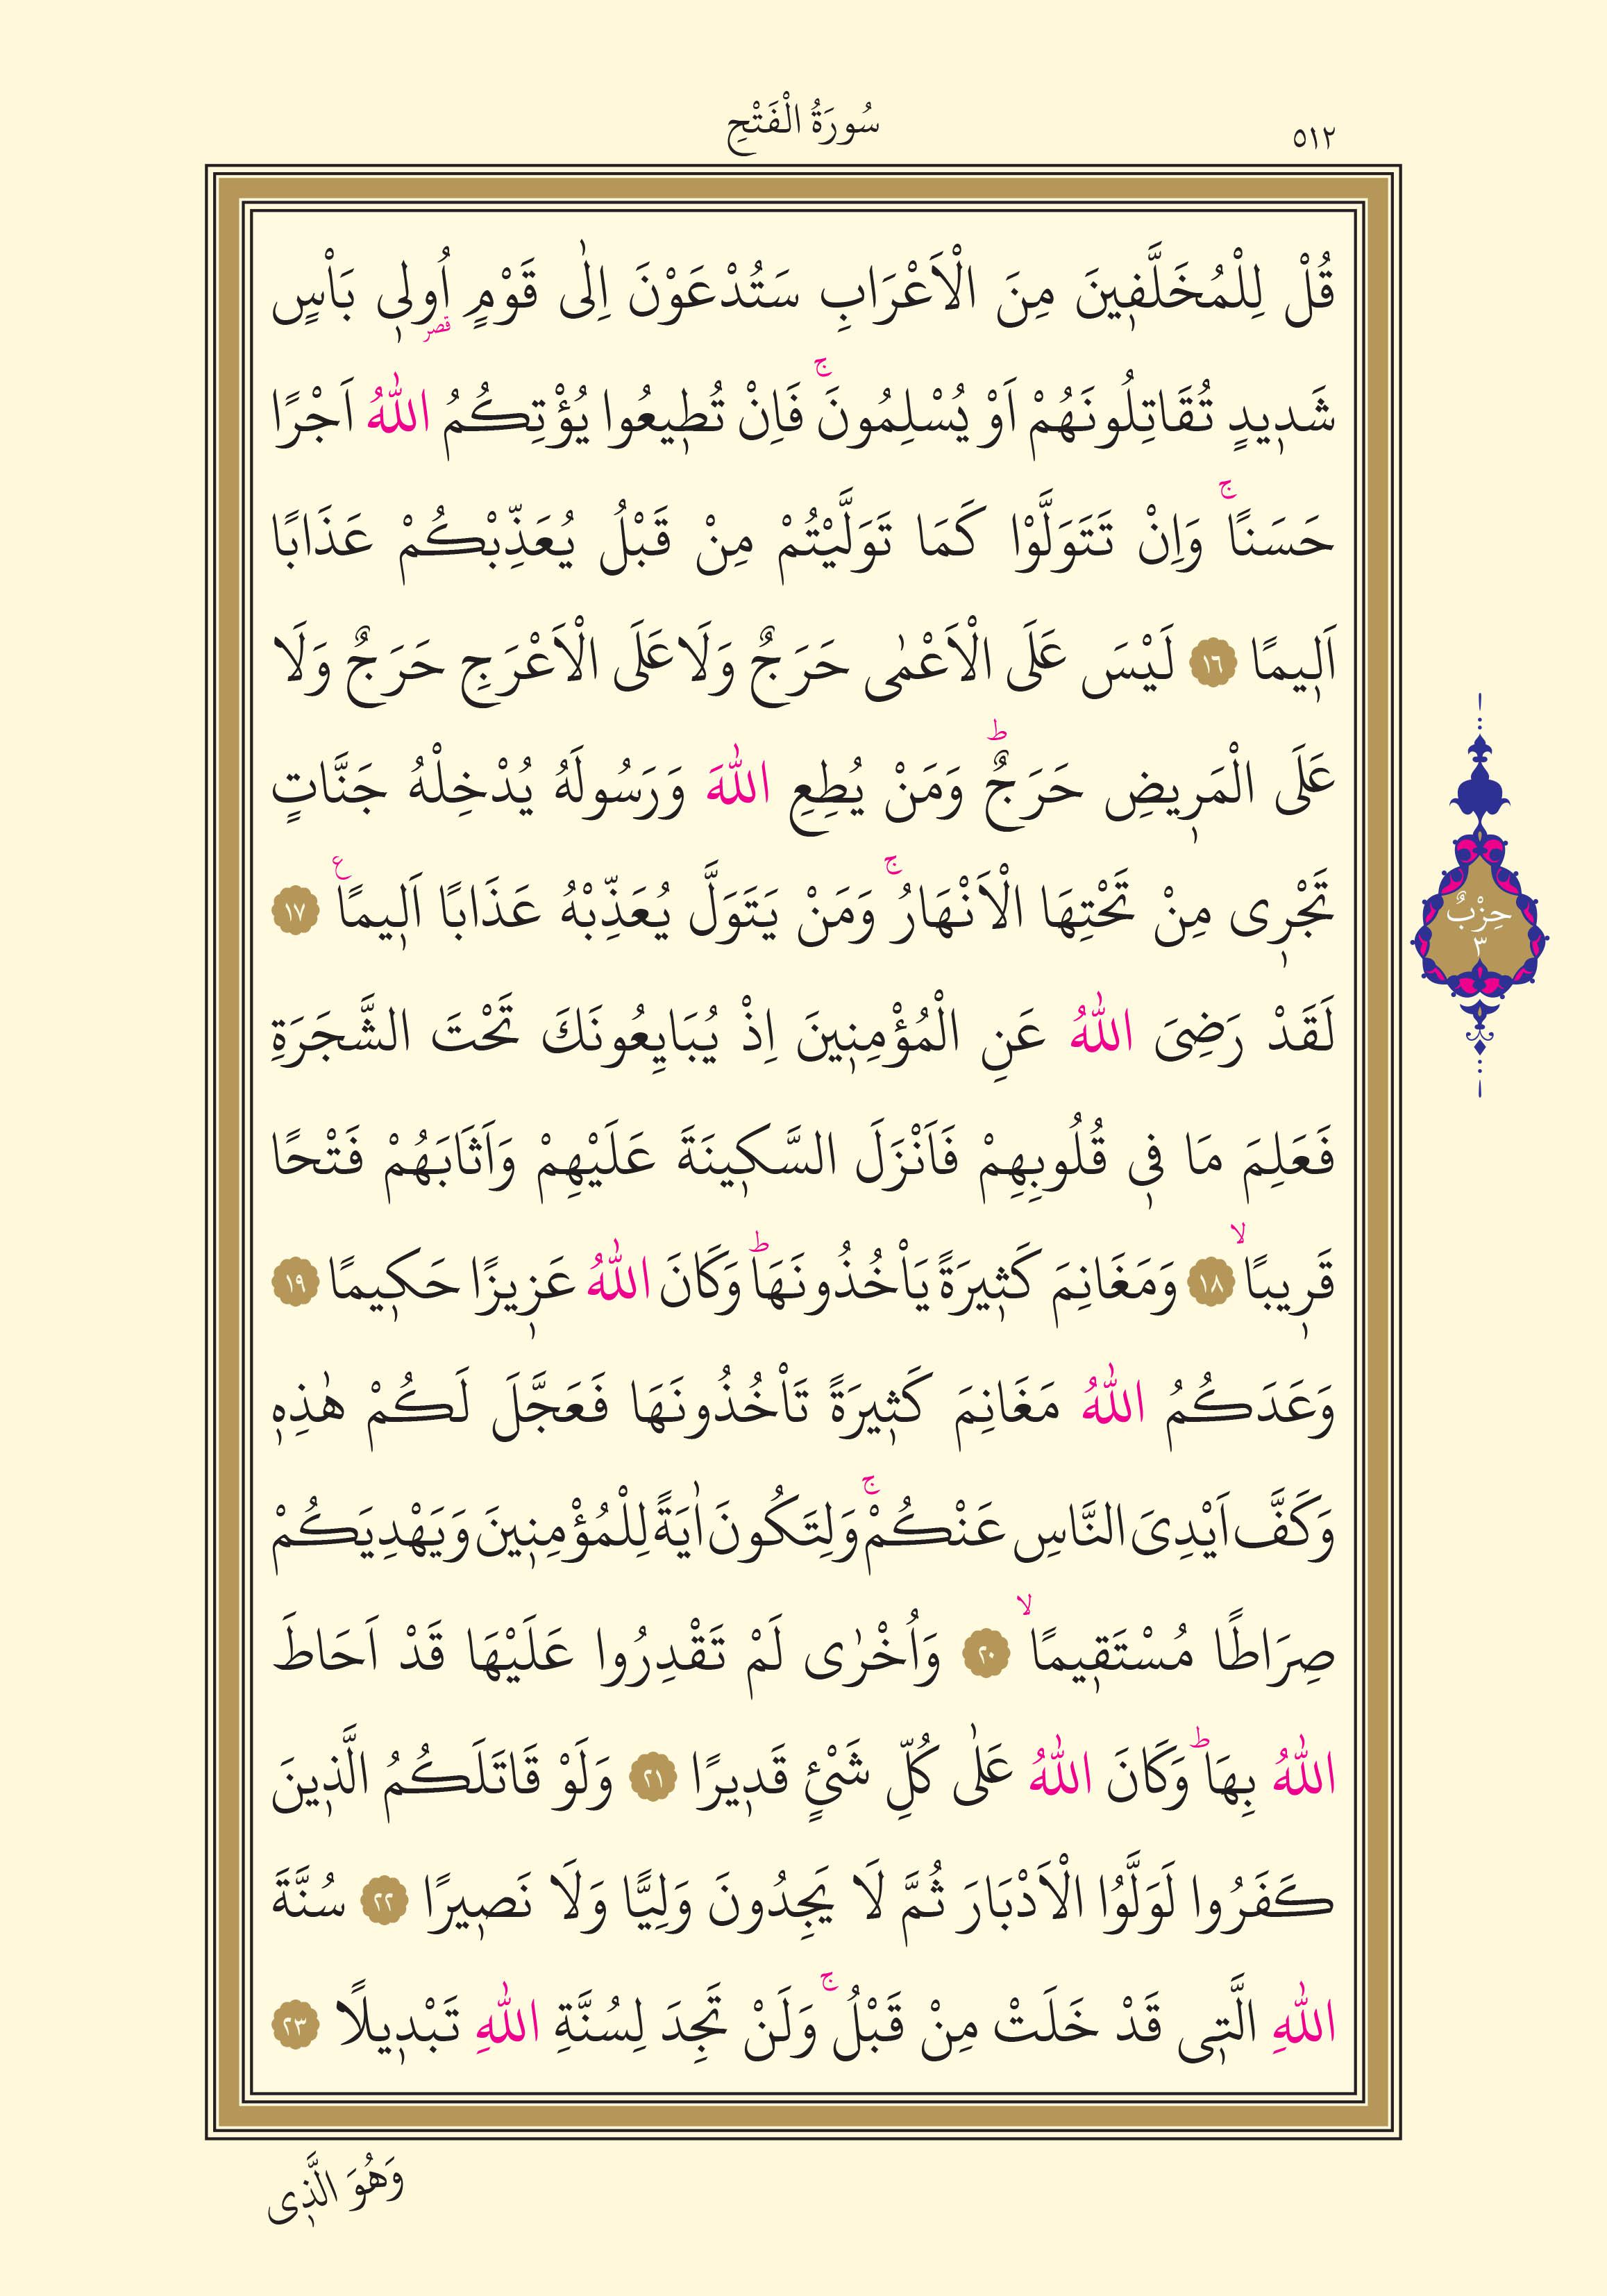 ٥١٢
سُورَةُ الْفَتْحِ
قُلْ لِلْمُخَلَّفٖينَ مِنَ الْاَعْرَابِ سَتُدْعَوْنَ اِلٰى قَوْمٍ اُولٖى بَاْسٍ
قصر
شَدٖيدٍ تُقَاتِلُونَهُمْ اَوْ يُسْلِمُونَۚ فَاِنْ تُطٖيعُوا يُؤْتِكُمُ اللّٰهُ اَجْرًا
حَسَنًاۚ وَاِنْ تَتَوَلَّوْا كَمَا تَوَلَّيْتُمْ مِنْ قَبْلُ يُعَذِّبْكُمْ عَذَابًا
اَلٖيمًا ١٦ لَيْسَ عَلَى الْاَعْمٰى حَرَجٌ وَلَا عَلَى الْاَعْرَجِ حَرَجٌ وَلَا
عَلَى الْمَرٖيضِ حَرَجٌؕ وَمَنْ يُطِعِ اللّٰهَ وَرَسُولَهُ يُدْخِلْهُ جَنَّاتٍ
تَجْرٖى مِنْ تَحْتِهَا الْاَنْهَارُۚ وَمَنْ يَتَوَلَّ يُعَذِّبْهُ عَذَابًا اَلٖيمًاع ١٧
لَقَدْ رَضِىَ اللّٰهُ عَنِ الْمُؤْمِنٖينَ اِذْ يُبَايِعُونَكَ تَحْتَ الشَّجَرَةِ
فَعَلِمَ مَا فٖى قُلُوبِهِمْ فَاَنْزَلَ السَّكٖينَةَ عَلَيْهِمْ وَاَثَابَهُمْ فَتْحًا
قَرٖيبًاۙ ١٨ وَمَغَانِمَ كَثٖيرَةً يَاْخُذُونَهَاؕ وَكَانَ اللّٰهُ عَزٖيزًا حَكٖيمًا ١٩
وَعَدَكُمُ اللّٰهُ مَغَانِمَ كَثٖيرَةً تَاْخُذُونَهَا فَعَجَّلَ لَكُمْ هٰذِهٖ
وَكَفَّ اَيْدِىَ النَّاسِ عَنْكُمْۚ وَلِتَكُونَ اٰيَةً لِلْمُؤْمِنٖينَ وَيَهْدِيَكُمْ
صِرَاطًا مُسْتَقٖيمًاۙ ٢٠ وَاُخْرٰى لَمْ تَقْدِرُوا عَلَيْهَا قَدْ اَحَاطَ
اللّٰهُ بِهَاؕ وَكَانَ اللّٰهُ عَلٰى كُلِّ شَىْءٍ قَدٖيرًا ٢١ وَلَوْ قَاتَلَكُمُ الَّذٖينَ
كَفَرُوا لَوَلَّوُا الْاَدْبَارَ ثُمَّ لَا يَجِدُونَ وَلِيًّا وَلَا نَصٖيرًا ٢٢ سُنَّةَ
اللّٰهِ الَّتٖى قَدْ خَلَتْ مِنْ قَبْلُۚ وَلَنْ تَجِدَ لِسُنَّةِ اللّٰهِ تَبْدٖيلًا ٢٣
وَهُوَ الَّذٖى
حِزْبٌ
٣